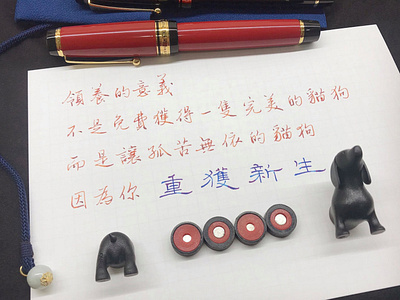 領養的意義
不是免費獲得一隻完美的貓狗
而是讓孤苦無依的貓狗
因為你 重獲新生